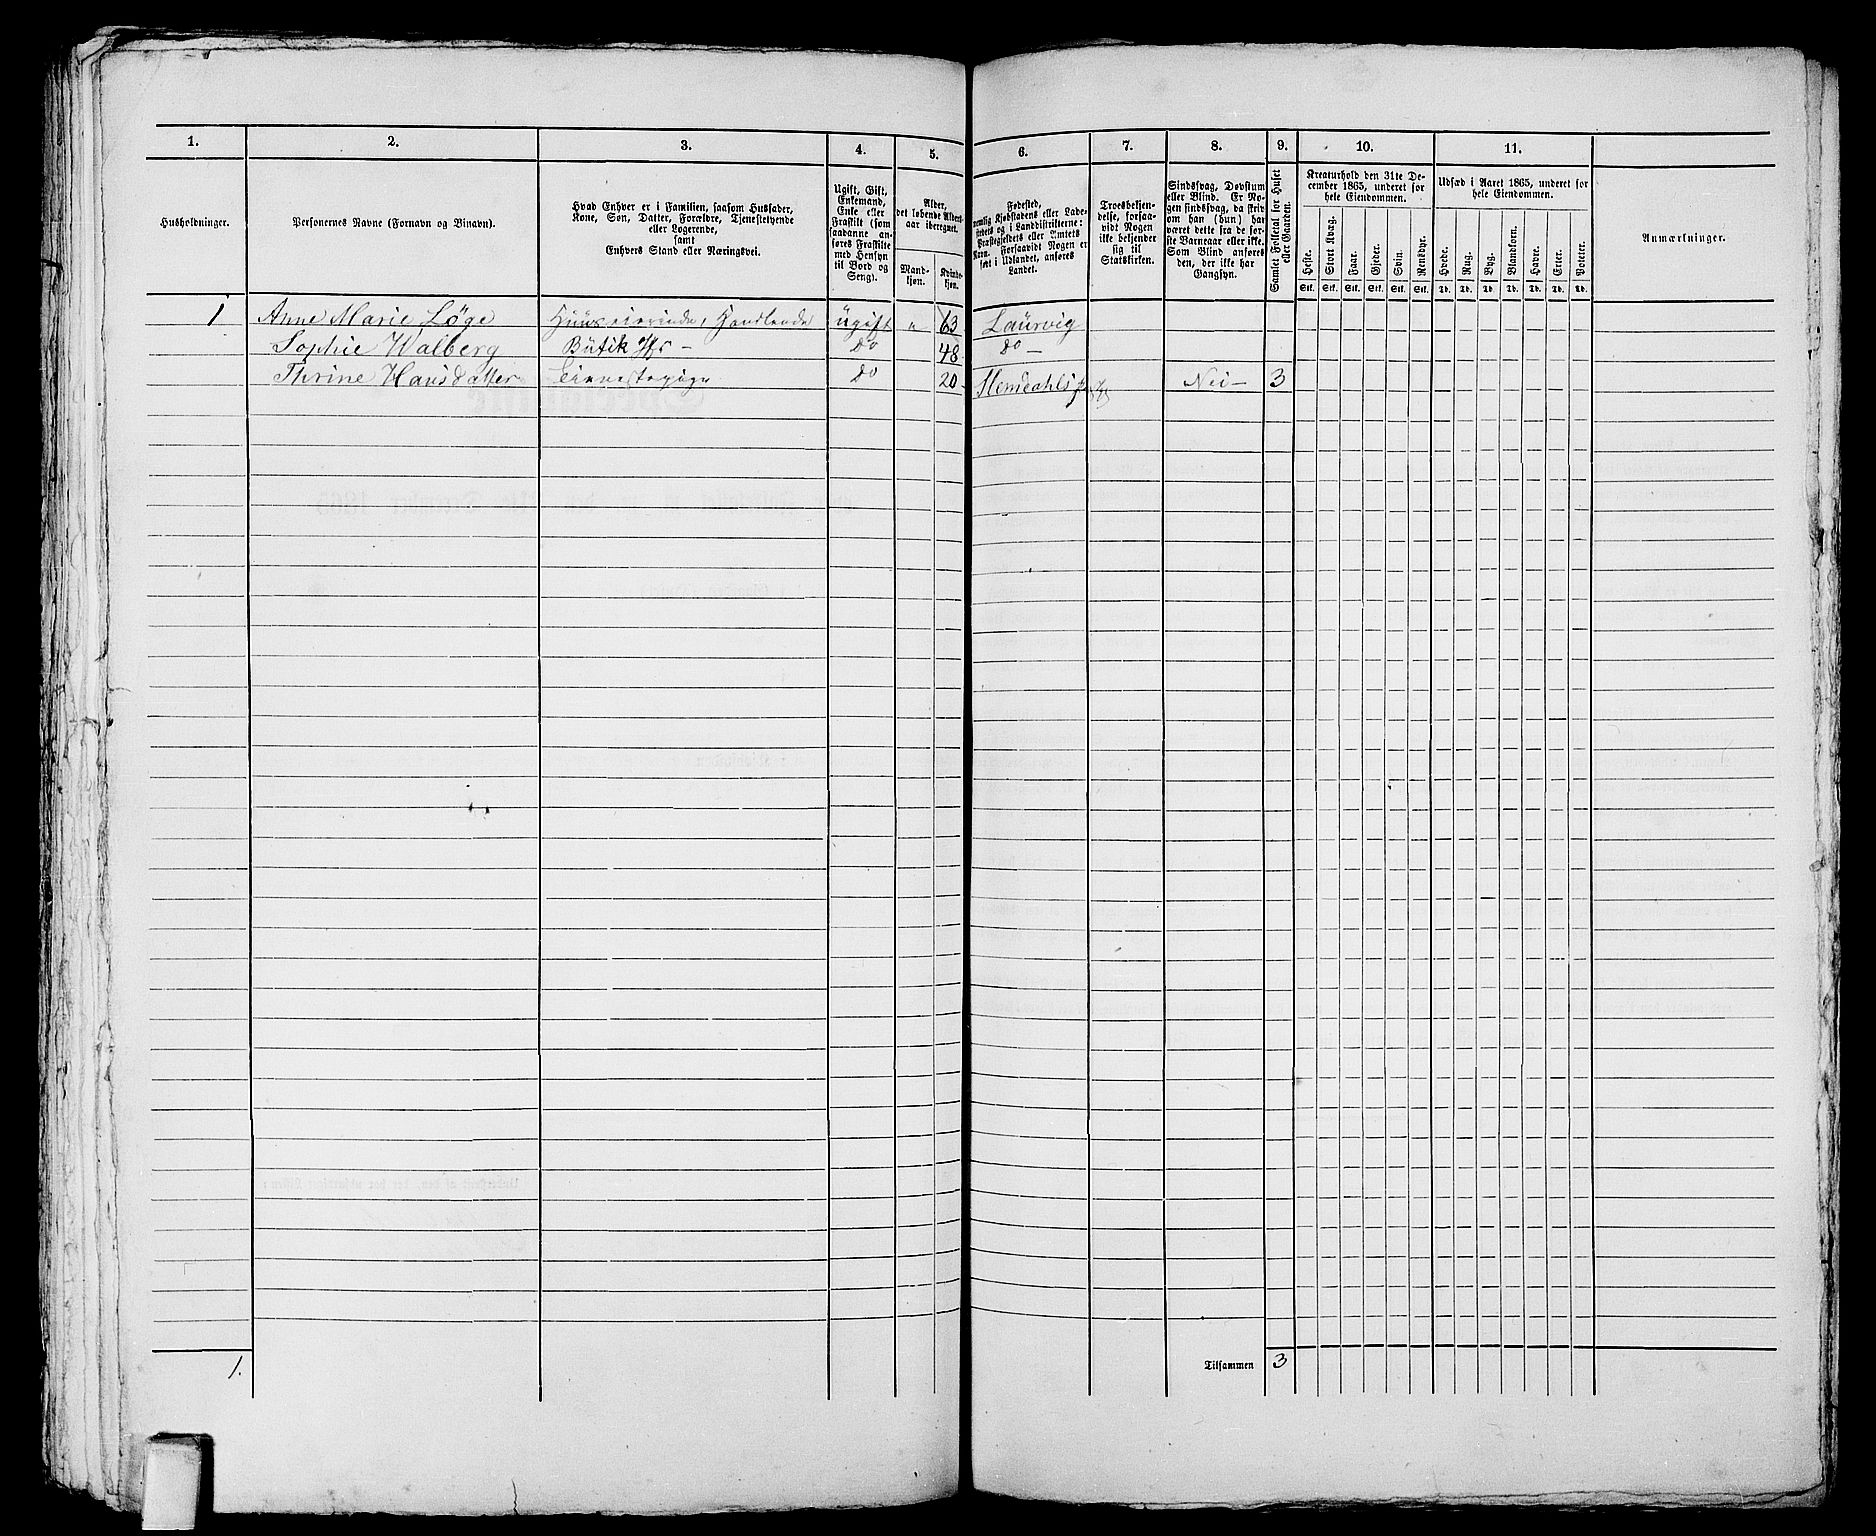 1. 2. 3. 4. 5. 6. 7. 8. 9. 10. 11.
Husholdninger.
Personernes Navne (Fornavn og Binavn).
Hvad Enhver er i Familien, saasom Husfader,
Kone, Søn, Datter, Forældre, Tjenestetyende
eller Logerende,
samt
Enhvers Stand eller Næringsvei.
Ugift, Gift,
Enkemand,
Enke eller
Fraskilt (som
saadanne an-
føres Fraskilte
med Hensyn
til Bord og
Seng).
Alder,
det løbende Alders-
aar iberegnet.
Mand-
kjøn.
Kvinde-
kjøn.
Fødested,
nemlig Kjøbstadens eller Lade-
stedets og i Landdistrikterne:
Præstegjeldets eller Amtets
Navn. Forsaavidt Nogen er
født i Udlandet, anføres
Landet.
Troesbekjen-
delse, forsaa-
vidt Nogen
ikke bekjender
sig til
Statskirken.
Sindssvag, Døvstum
eller Blind. Er No-
gen sindssvag, da skriv
om han (hun) har
været dette fra de før-
ste Barneaar eller ikke.
Som Blind anføres
den, der ikke har
Gangsyn.
Samlet Folketal for Huset
eller Gaarden.
Kreaturhold den 31te De-
cember 1865, underet for
hele Eiendommen.
Heste. Stort Kvæg. Faar. Gjeder. Svin. Rensdyr.
Stk. Stk. Stk. Stk. Stk. Stk.
Udsæd i Aaret 1865, underet for
hele Eiendommen.
Hvede. Rug. Byg. Blandkorn. Havre. Erter. Poteter.
Td. Td. Td. Td. Td. Td. Td.
Anmærkninger.
1 Anne Marie Løge Huuseierinde, Handlende ugift " 63 Laurvig
Sophie Walberg Butik do 48 do —
Thrine Hansdatter do 20 Nei — 3
1. Tilsammen 3